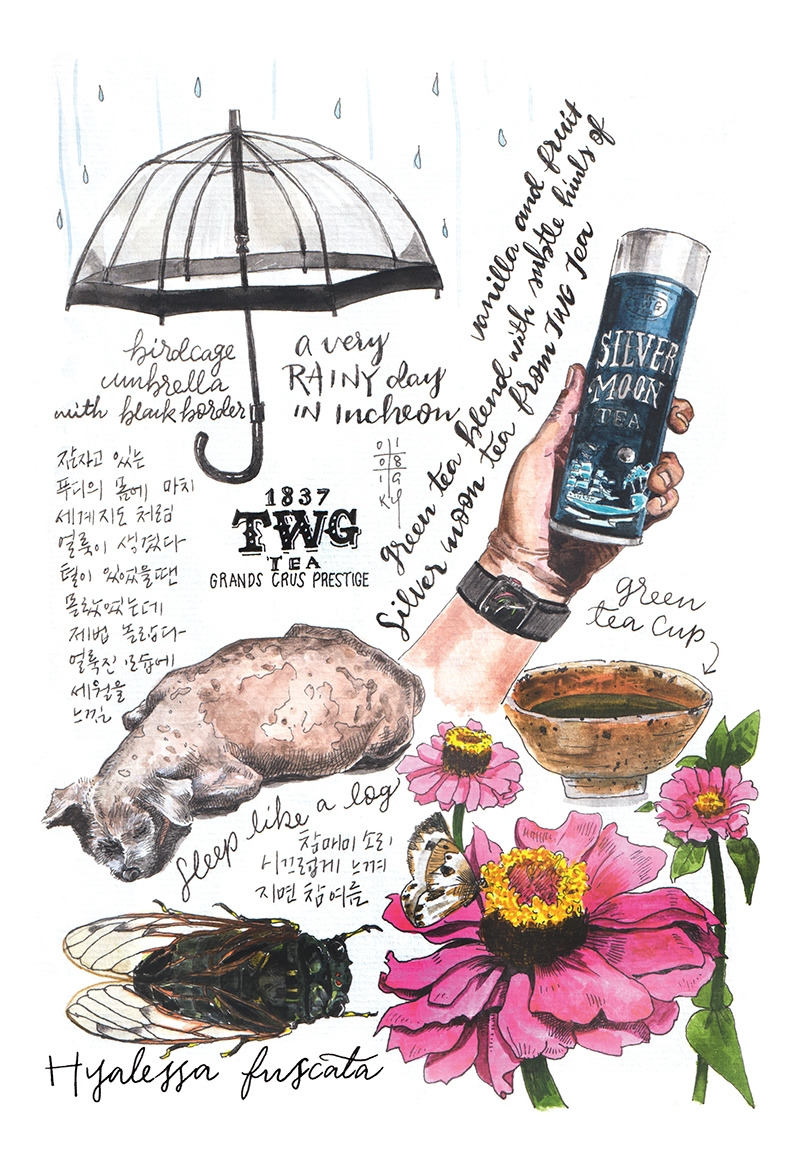 birdcage
umbrella
with black border
a very
RAINY day
IN Incheon
vanilla and fruit
green tea blend with subtle hints of
Silver moon tea from TWG Tea
TWG
SILVER
MOON
TEA
잠자고 있는
푸디의 몸에 마치
세계지도 처럼
얼룩이 생겼다
털이 있었을땐
몰랐었는데
제법 놀랍다
얼룩진 모습에
세월을
느낌
1837
TWG
TEA
GRANDS CRUS PRESTIGE
green
tea cup
Sleep like a log
참매미 소리
시끄럽게 느껴
지면 참여름
Hyalessa fuscata